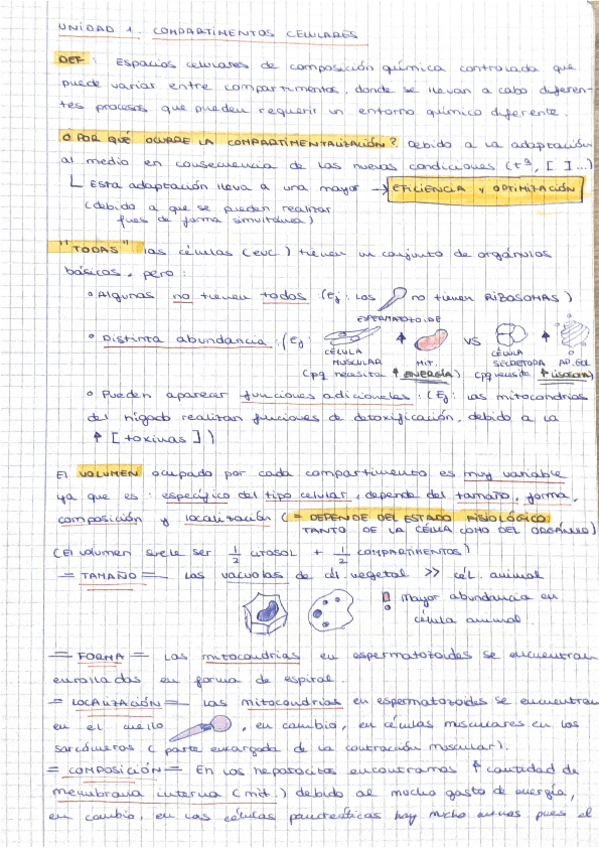 UNIDAD 1. COMPARTIMENTOS CELULARES
DEF: Espacios celulares de composición química controlada que
puede variar entre compartimentos, donde se llevan a cabo diferen-
tes procesos que pueden requerir un entorno químico diferente.
¿POR QUÉ OCURRE LA COMPARTIMENTALIZACIÓN? Debido a la adaptación
al medio en consecuencia de las nuevas condiciones (tª, [ ]...)
Esta adaptación lleva a una mayor → EFICIENCIA y OPTIMIZACIÓN
(debido a que se pueden realizar
fues de forma simultánea)
"TODAS" las células (euc.) tienen un conjunto de orgánulos
básicos, pero:
• Algunas no tienen todos (Ej: los no tienen RIBOSOMAS)
ESPERMATOZOIDE
• Distinta abundancia: (Ej: ↑ VS ↑
CÉLULA MUSCULAR MIT. CÉLULA SECRETORA AP. GOL
(pq necesita ↑ ENERGÍA) (pq necesita ↑
• Pueden aparecer funciones adicionales: (Ej: las mitocondrias
del hígado realizan funciones de detoxificación, debido a la
↑ [toxinas])
El VOLUMEN ocupado por cada compartimento es muy variable
ya que es: específico del tipo celular, depende del tamaño, forma,
composición y localización (= DEPENDE DEL ESTADO FISIOLÓGICO
TANTO DE LA CÉLULA COMO DEL ORGÁNULO)
(El volumen suele ser 1/2 CITOSOL + 1/2 COMPARTIMENTOS)
= TAMAÑO = Las vacuolas de cél. vegetal >> cél. animal
Mayor abundancia en
célula animal
= FORMA = Las mitocondrias en espermatozoides se encuentran
enrolladas en forma de espiral.
= LOCALIZACIÓN = Las mitocondrias en espermatozoides se encuentran
en el cuello , en cambio, en células musculares en los
sarcómeros (parte encargada de la contracción muscular).
= COMPOSICIÓN = En los hepatocitos encontramos ↑ cantidad de
membrana interna (mit.) debido al mucho gasto de energía,
en cambio, en las células pancreáticas hay mucho menos pues el